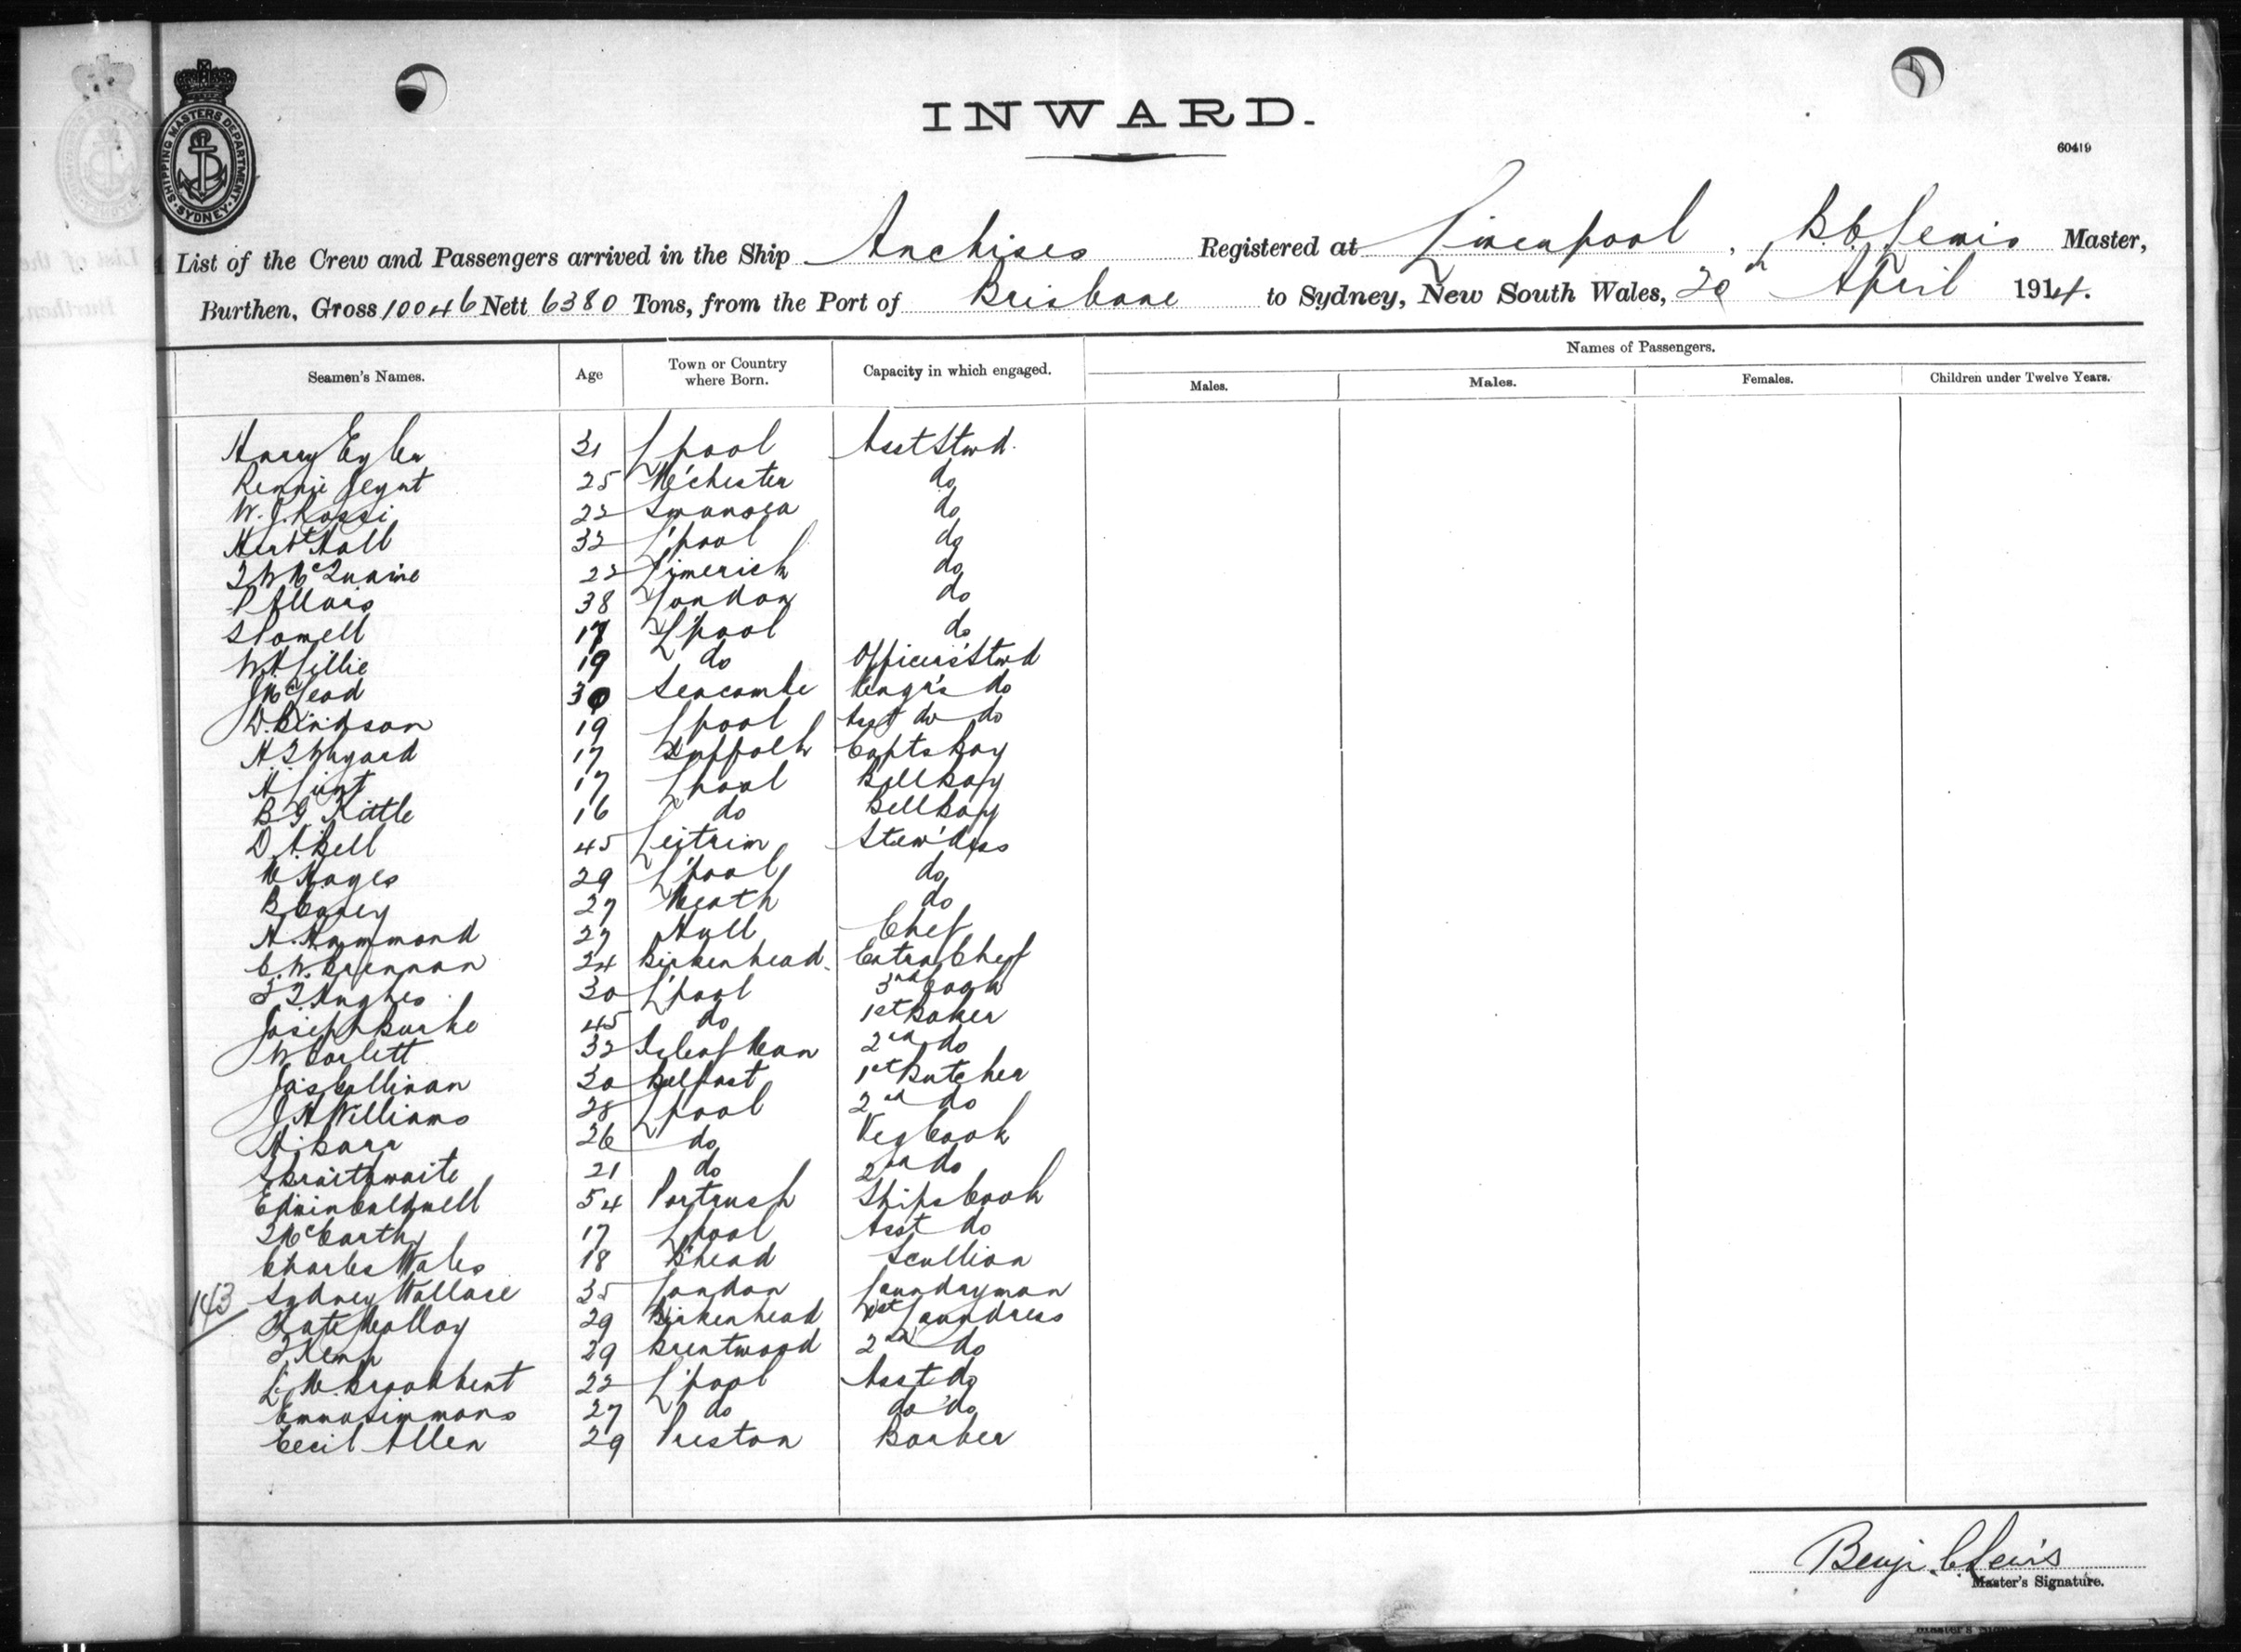 INWARD.
60419
SHIPPING MASTERS DEPARTMENT. SYDNEY
List of the Crew and Passengers arrived in the Ship Anchises Registered at Liverpool, B.C. Lewis Master,
Burthen, Gross 10046 Nett 6380 Tons, from the Port of Brisbane to Sydney, New South Wales, 20th April 1914.
Seamen's Names. Age Town or Country where Born. Capacity in which engaged. Names of Passengers.
Males. Males. Females. Children under Twelve Years.
Harry 31 L'pool Asst Stwd.
Rennie 25 M'chester do
W. J. Rossi 22 Swansea do
Herbt Hall 32 L'pool do
22 Limerick do
38 London do
S Powell 17 L'pool do
W. H. Lillie 19 do Officers' Stwd
J McLeod 30 Seacombe Engr's do
19 L'pool Asst do do
17 Suffolk Capts Boy
H. Lunt 17 L'pool Bellboy
B G. Kittle 16 do Bellboy
D. A. Bell 45 Leitrim Stew'dess
29 L'pool do
B Carey 27 Meath do
H. Hammond 27 Hull Chef
C. W. Brennan 24 Birkenhead Extra Chef
Hughes 30 L'pool 3rd Cook
Joseph Burke 45 do 1st Baker
W Corlett 32 Isle of Man 2nd do
Jas Cullinan 30 Belfast 1st Butcher
J H Williams 28 L'pool 2nd do
26 do Veg Cook
Braithwaite 21 do 2nd do
Edwin Caldwell 54 Portrush Ships Cook
McCarthy 17 L'pool Asst do
Charles Wales 18 B'head Scullion
143 Sydney Wallace 35 London Laundryman
Kate Molloy 29 Birkenhead 1st Laundress
Kemp 29 Brentwood 2nd do
M. Broadbent 22 L'pool Asst do
Emma Simmons 27 do do do
Cecil Allen 29 Preston Barber
Benj. C Lewis
Master's Signature.